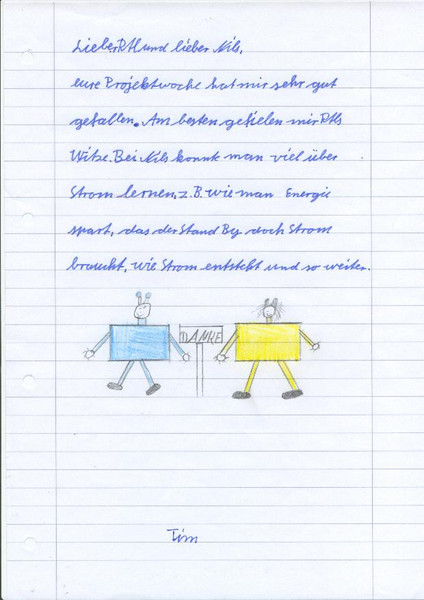 Lieber Rtl und lieber Nils,
eure Projektwoche hat mir sehr gut
gefallen. Am besten gefielen mir Rtls
Witze. Bei Nils konnte man viel über
Strom lernen, z.B. wie man Energie
spart, das der Stand By doch Strom
braucht, wie Strom entsteht und so weiter.
DANKE
Tim